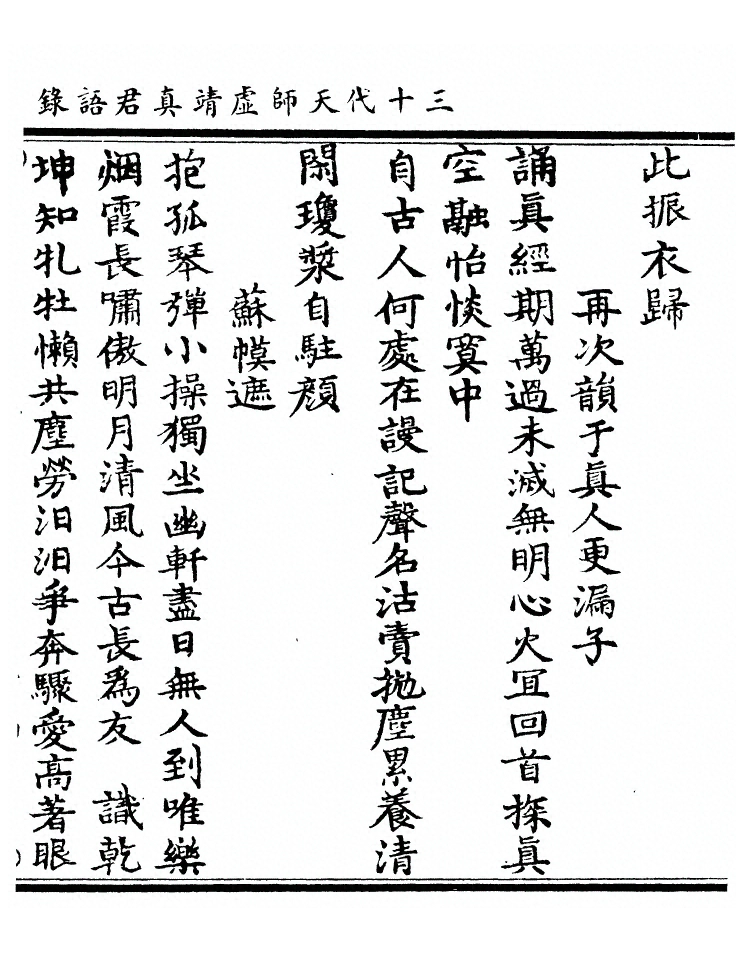 三十代天師虛靖真君語錄
此振衣歸
再次韻于真人更漏子
誦真經期萬過未滅無明心火冝回首探真
空融怡惔寞中
自古人何處在謾記聲名沽賣拋塵累養清
閑瓊漿自駐顔
蘇幙遮
抱孤琴彈小操獨坐幽軒盡日無人到唯樂
烟霞長嘯傲明月清風今古長爲友 識乾
坤知牝牡懶共塵勞汨汨爭奔驟愛高著眼